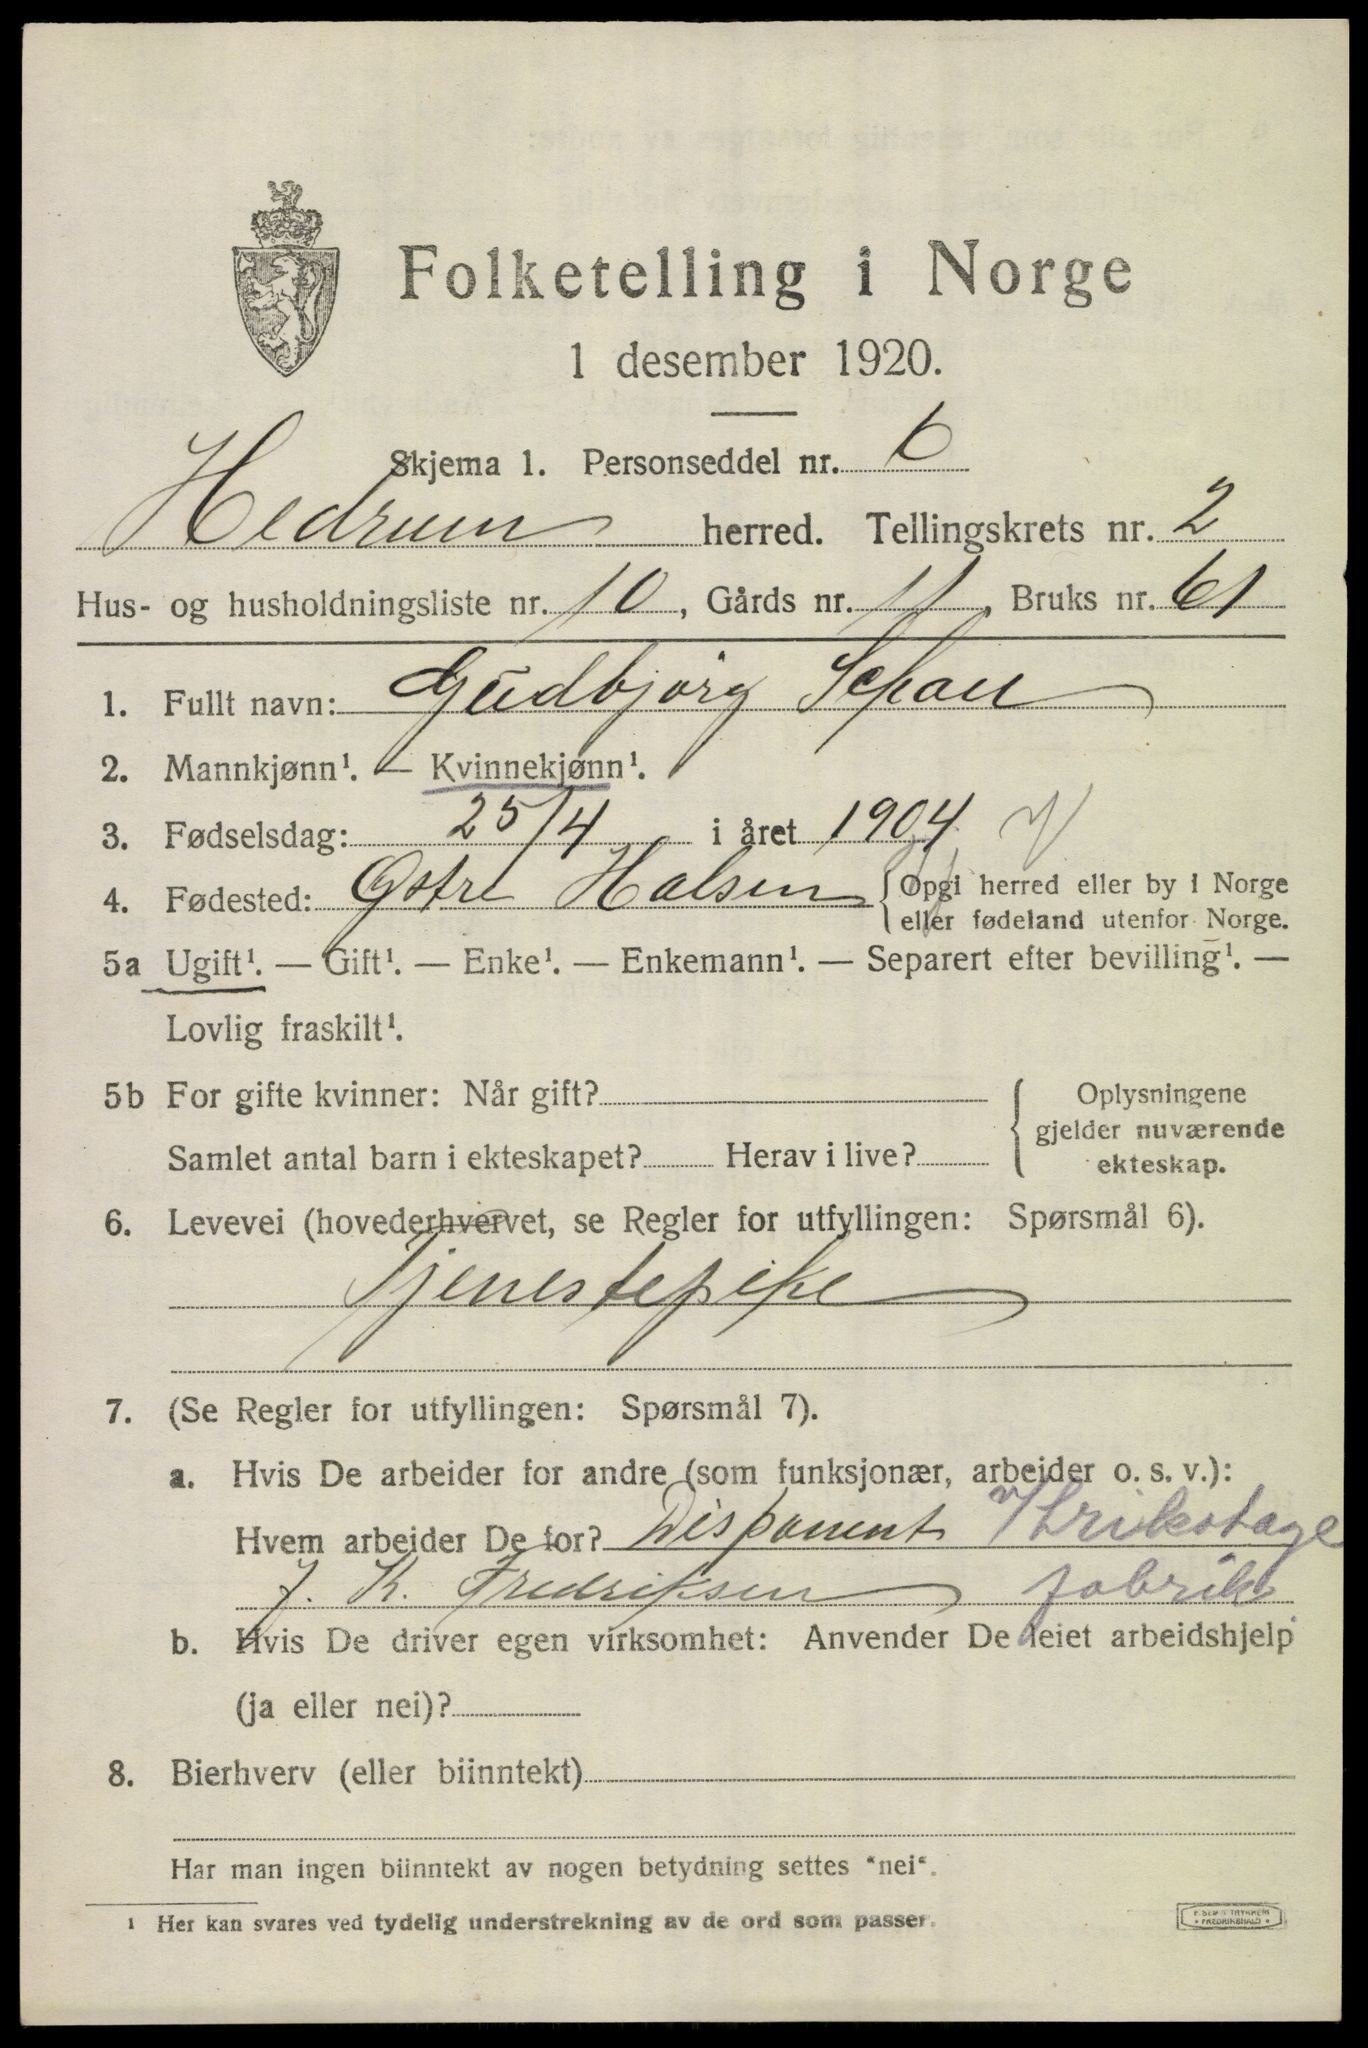 Folketelling i Norge
1 desember 1920.
Skjema 1. Personseddel nr. 6
Hedrum herred. Tellingskrets nr. 2
Hus- og husholdningsliste nr. 10, Gårds nr. 11, Bruks nr. 61
1. Fullt navn: Gudbjörg Schau
2. Mannkjønn¹. — Kvinnekjønn¹.
3. Fødselsdag: 25/4 i året 1904
4. Fødested: Østre Halsen {Opgi herred eller by i Norge
eller fødeland utenfor Norge.
5a Ugift¹. — Gift¹. — Enke¹. — Enkemann¹. — Separert efter bevilling¹. —
Lovlig fraskilt¹.
5b For gifte kvinner: Når gift?
Samlet antal barn i ekteskapet? Herav i live?
Oplysningene
gjelder nuværende
ekteskap.
6. Levevei (hovederhvervet, se Regler for utfyllingen: Spørsmål 6).
Tjenestepike
7. (Se Regler for utfyllingen: Spørsmål 7).
a. Hvis De arbeider for andre (som funksjonær, arbeider o. s. v.):
Hvem arbeider De for? Disponent
J. K. Fredriksen fabrik
b. Hvis De driver egen virksomhet: Anvender De leiet arbeidshjelp
(ja eller nei)?
8. Bierhverv (eller biinntekt)
Har man ingen biinntekt av nogen betydning settes "nei".
¹ Her kan svares ved tydelig understrekning av de ord som passer.